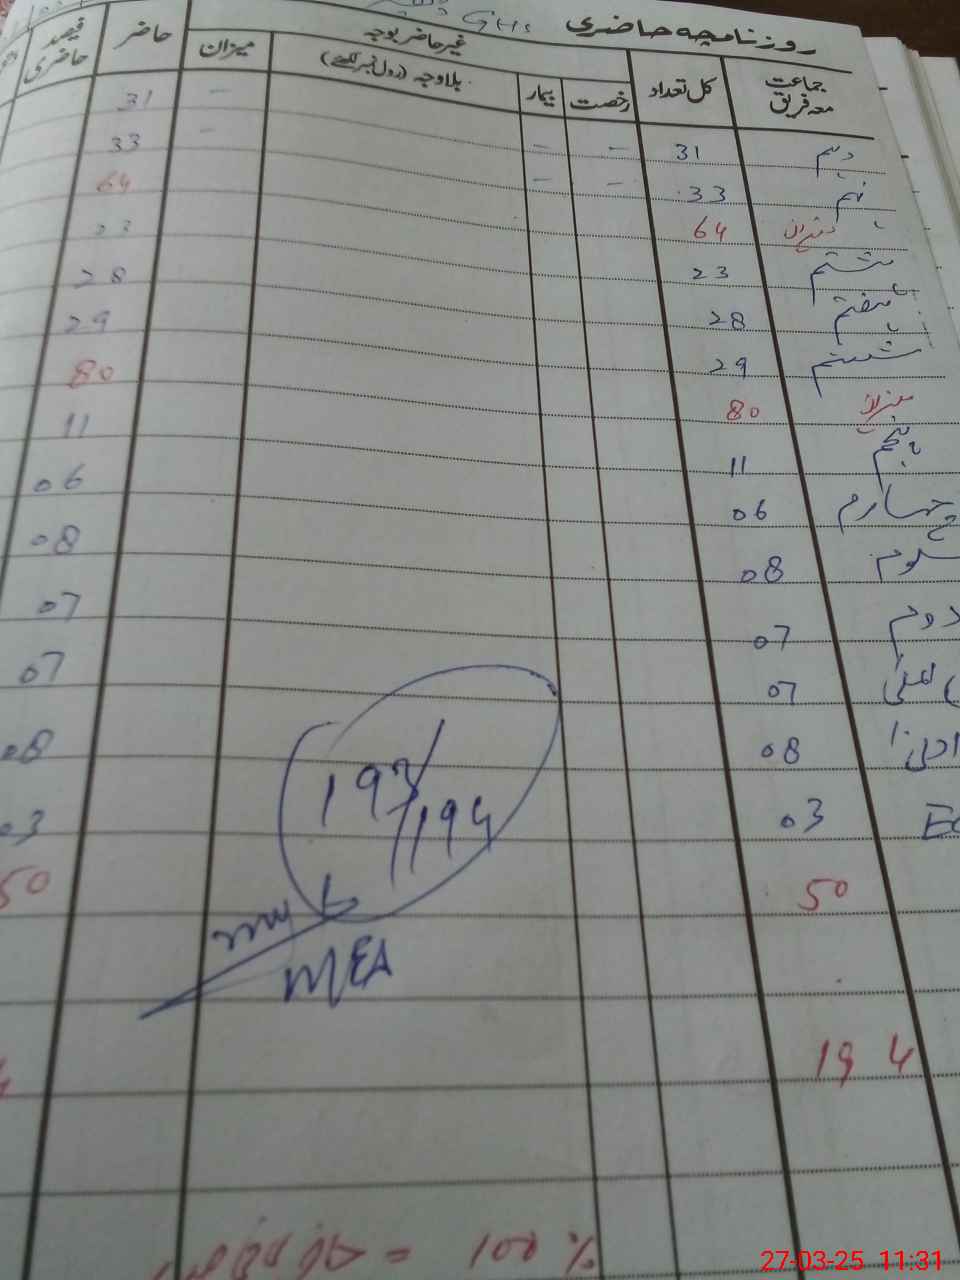 روزنامچہ حاضری GHS
جماعت معہ فریق کل تعداد غیر حاضر بوجہ حاضر فیصد حاضری
رخصت بیمار بلاوجہ (رول نمبر لکھیے) میزان
دہم 31 - - - 31
نہم 33 - - - 33
میزان 64 64
ہشتم 23 23
ہفتم 28 28
ششم 29 29
میزان 80 80
پنجم 11 11
چہارم 06 06
سوم 08 08
دوم 07 07
اعلیٰ 07 07
ادنیٰ 08 08
03 03
50 50
193/194
MEA
194
= 100 %
27-03-25 11:31